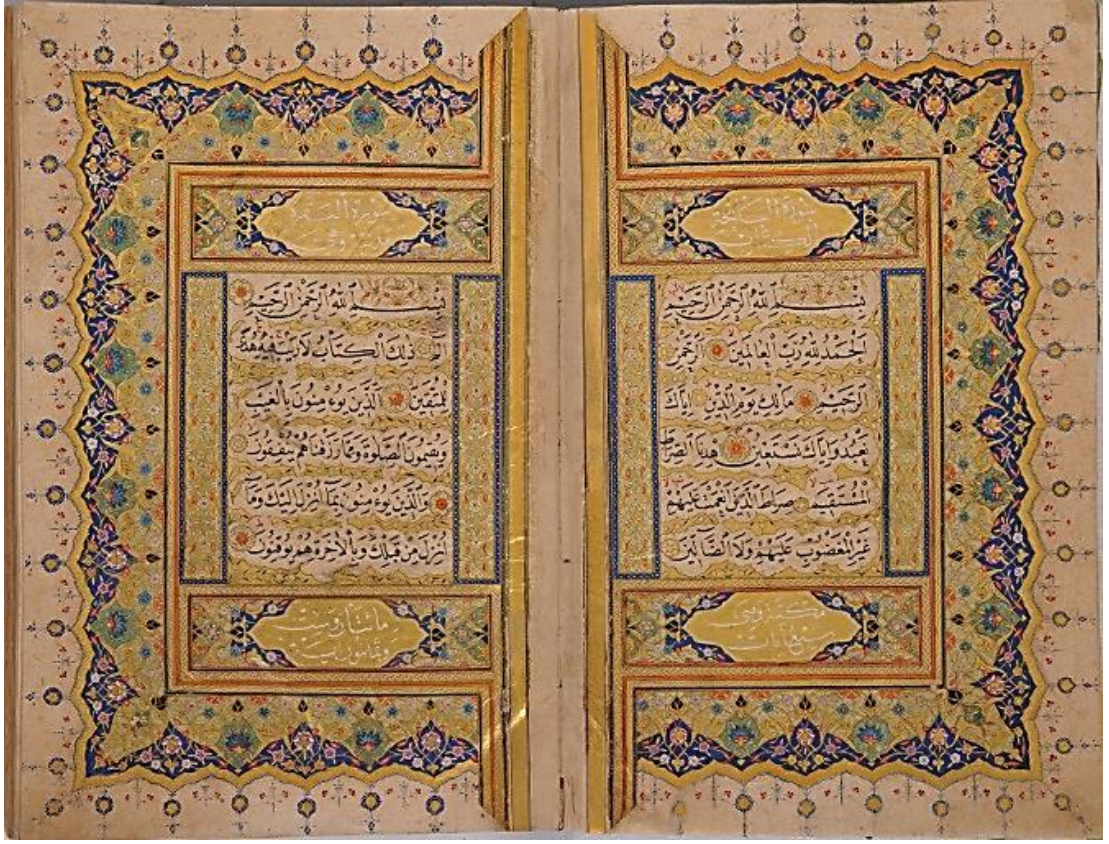 سورة الفاتحة
الكتاب
بسم الله الرحمن الرحيم
الحمد لله رب العالمين الرحمن
الرحيم مالك يوم الدين اياك
نعبد واياك نستعين اهدنا الصراط
المستقيم صراط الذين انعمت عليهم
غير المغضوب عليهم ولا الضآلين
سبع ايات
سورة البقرة
بسم الله الرحمن الرحيم
الم ذلك الكتاب لا ريب فيه هدى
للمتقين الذين يوءمنون بالغيب
ويقيمون الصلوة ومما رزقناهم ينفقون
والذين يوءمنون بمآ انزل اليك ومآ
انزل من قبلك وبالاخرة هم يوقنون
مائتان وست
وثمانون